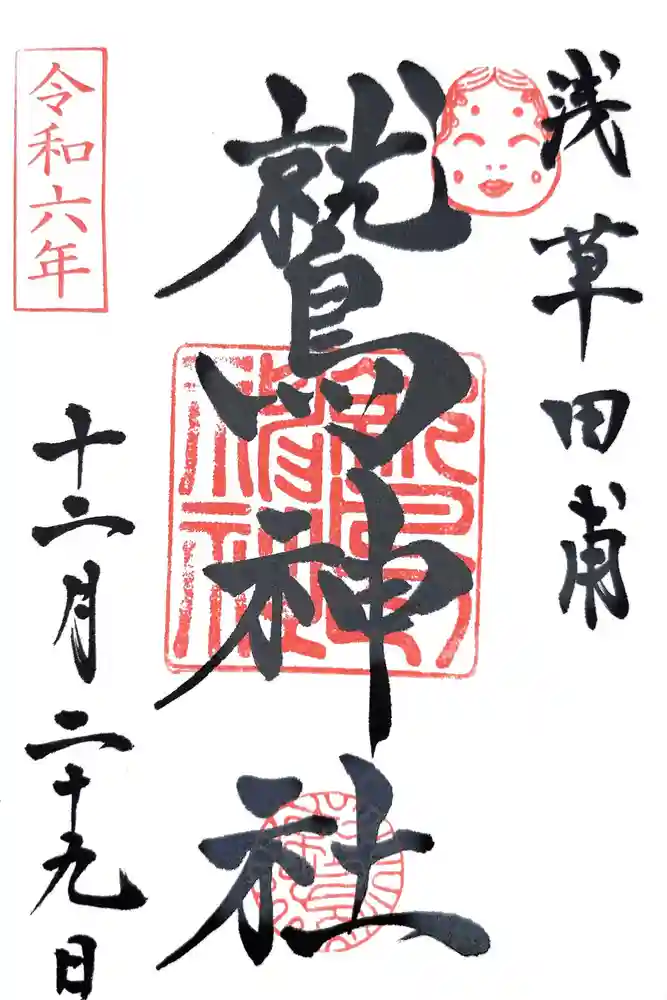 浅草田甫
鷲神社
令和六年
十二月二十九日